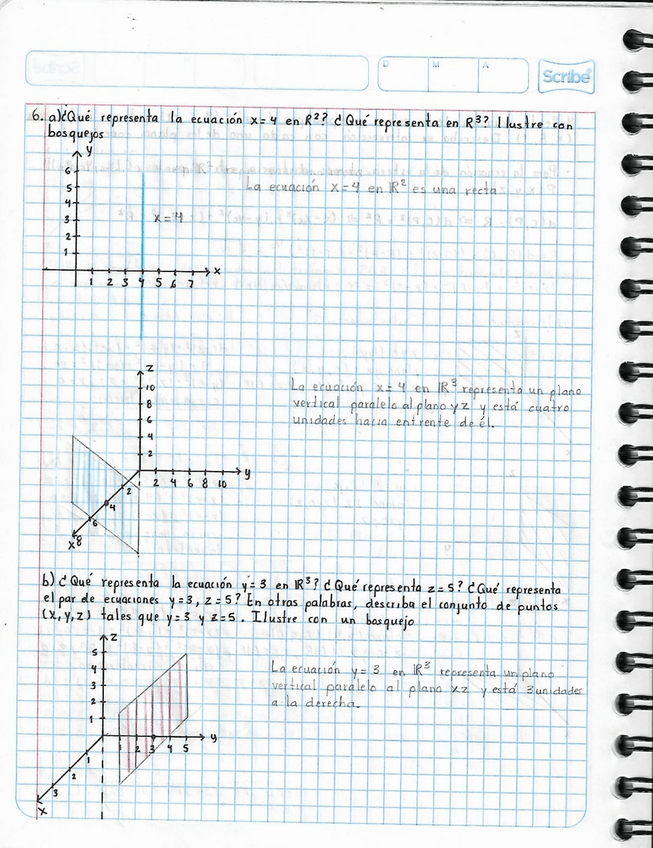 D M A
Scribe
6. a) ¿Qué representa la ecuación x=4 en R²? ¿Qué representa en R³? Ilustre con
bosquejos
y
6
5
4
3
2
1
La ecuación x=4 en ℝ² es una recta
x=4
x
1 2 3 4 5 6 7
z
10
8
6
4
2
La ecuación x=4 en ℝ³ representa un plano
vertical paralelo al plano yz y está cuatro
unidades hacia enfrente de él.
y
2 4 6 8 10
2
4
6
8
x
b) ¿Qué representa la ecuación y=3 en ℝ³? ¿Qué representa z=5? ¿Qué representa
el par de ecuaciones y=3, z=5? En otras palabras, describa el conjunto de puntos
(x,y,z) tales que y=3 y z=5. Ilustre con un bosquejo
z
5
4
3
2
1
La ecuación y=3 en ℝ³ representa un plano
vertical paralelo al plano xz y está 3 unidades
a la derecha.
y
1 2 3 4 5
1
2
3
x